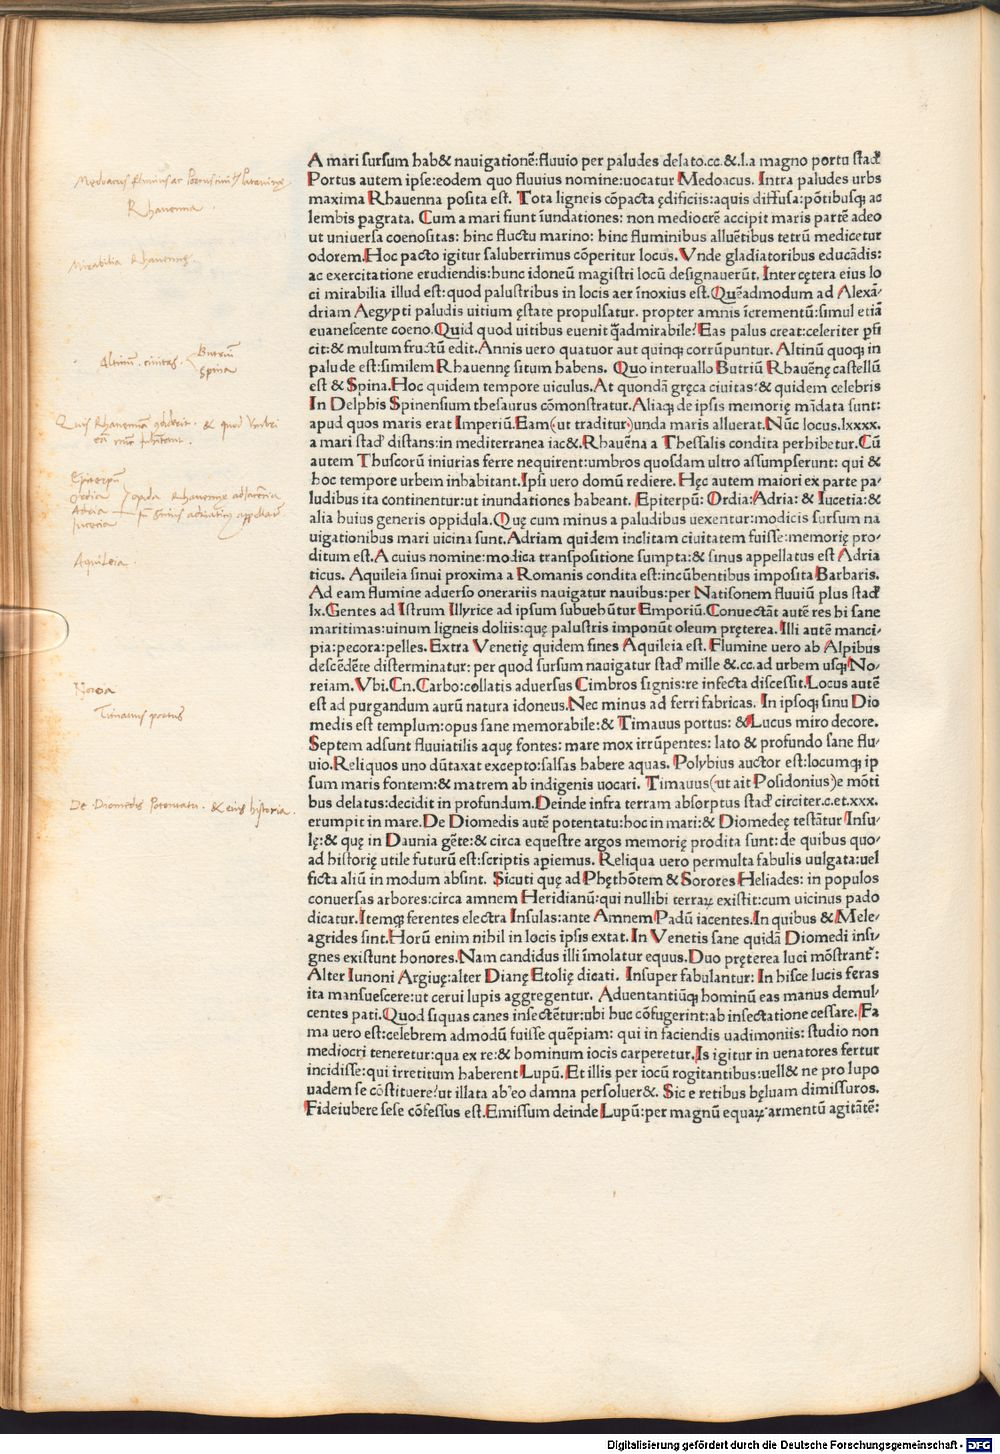 A mari sursum hab& nauigationē:fluuio per paludes delato.cc.&.l.a magno portu stad
Portus autem ipse:eodem quo fluuius nomine:uocatur Medoacus. Intra paludes urbs
maxima Rhauenna posita est. Tota ligneis cōpacta ędificiis:aquis diffusa:pōtibusqȝ ac
lembis pagrata. Cum a mari fiunt iundationes: non mediocrē accipit maris partē adeo
ut uniuersa coenositas: hinc fluctu marino: hinc fluminibus alluētibus tetrū medicetur
odorem. Hoc pacto igitur saluberrimus cōperitur locus. Vnde gladiatoribus educādis:
ac exercitatione erudiendis:hunc idoneū magistri locū designauerūt. Inter cętera eius lo
ci mirabilia illud est:quod palustribus in locis aer inoxius est. Quēadmodum ad Alexā-
driam Aegypti paludis uitium ęstate propulsatur. propter amnis icrementū:simul etiā
euanescente coeno. Quid quod uitibus euenit q̄admirabile? Eas palus creat:celeriter pfi
cit:& multum fructū edit. Annis uero quatuor aut quinqȝ corrūpuntur. Altinū quoqȝ in
palude est:similem Rhauennę situm habens. Quo interuallo Butriū Rhauēnę castellū
est & Spina. Hoc quidem tempore uiculus. At quondā gręca ciuitas:& quidem celebris
In Delphis Spinensium thesaurus cōmonstratur. Aliaqȝ de ipsis memorię mādata sunt:
apud quos maris erat Imperiū. Eam(ut traditur)unda maris alluerat. Nūc locus.lxxxx.
a mari stad distans:in mediterranea iac&. Rhauēna a Thessalis condita perhibetur. Cū
autem Thuscorū iniurias ferre nequirent:umbros quosdam ultro assumpserunt: qui &
hoc tempore urbem inhabitant. Ipsi uero domū rediere. Hęc autem maiori ex parte pa-
ludibus ita continentur:ut inundationes habeant. Epiterpū: Ordia: Adria: & Iucetia:&
alia huius generis oppidula. Quę cum minus a paludibus uexentur:modicis sursum na
uigationibus mari uicina sunt. Adriam quidem inclitam ciuitatem fuisse:memorię pro-
ditum est. A cuius nomine:modica transpositione sumpta:& sinus appellatus est Adria
ticus. Aquileia sinui proxima a Romanis condita est:incūbentibus imposita Barbaris.
Ad eam flumine aduerso onerariis nauigatur nauibus:per Natisonem fluuiū plus stad
lx. Gentes ad Istrum Illyrice ad ipsum subuehūtur Emporiū. Conuectāt autē res hi sane
maritimas:uinum ligneis doliis:quę palustris imponūt oleum pręterea. Illi autē manci-
pia:pecora:pelles. Extra Venetię quidem fines Aquileia est. Flumine uero ab Alpibus
descēdēte disterminatur: per quod sursum nauigatur stad mille &.cc.ad urbem usqȝ No-
reiam. Vbi. Cn. Carbo:collatis aduersus Cimbros signis:re infecta discessit. Locus autē
est ad purgandum aurū natura idoneus. Nec minus ad ferri fabricas. In ipsoqȝ sinu Dio
medis est templum:opus sane memorabile:& Timauus portus: & Lucus miro decore.
Septem adsunt fluuiatilis aquę fontes: mare mox irrūpentes: lato & profundo sane flu-
uio. Reliquos uno dūtaxat excepto:salsas habere aquas. Polybius auctor est:locumqȝ ip
sum maris fontem:& matrem ab indigenis uocari. Timauus(ut ait Posidonius)e mōti
bus delatus:decidit in profundum. Deinde infra terram absorptus stad circiter.c.et.xxx.
erumpit in mare. De Diomedis autē potentatu:hoc in mari:& Diomedeę testātur Insu-
lę:& quę in Daunia gēte:& circa equestre argos memorię prodita sunt: de quibus quo-
ad historię utile futurū est:scriptis apiemus. Reliqua uero permulta fabulis uulgata:uel
ficta aliū in modum absint. Sicuti quę ad Phęthōtem & Sorores Heliades: in populos
conuersas arbores:circa amnem Heridianū:qui nullibi terraꝝ existit:cum uicinus pado
dicatur. Itemqȝ ferentes electra Insulas:ante Amnem Padū iacentes. In quibus & Mele-
agrides sint. Horū enim nihil in locis ipsis extat. In Venetis sane quidā Diomedi insi-
gnes existunt honores. Nam candidus illi imolatur equus. Duo pręterea luci mōstrant:
Alter Iunoni Argiuę:alter Dianę Etolię dicati. Insuper fabulantur: In hisce lucis feras
ita mansuescere:ut cerui lupis aggregentur. Aduentantiūqȝ hominū eas manus demul-
centes pati. Quod siquas canes insectētur:ubi huc cōfugerint:ab insectatione cessare. Fa
ma uero est:celebrem admodū fuisse quēpiam: qui in faciendis uadimoniis: studio non
mediocri teneretur:qua ex re:& hominum iocis carperetur. Is igitur in uenatores fertur
incidisse:qui irretitum haberent Lupū. Et illis per iocū rogitantibus:uell& ne pro lupo
uadem se cōstituere?ut illata ab eo damna persoluer&. Sic e retibus bęluam dimissuros.
Fideiubere sese cōfessus est. Emissum deinde Lupū:per magnū equaꝝ armentū agitātē:
Rhauenna.
Mirabilia Rhauennę.
Altinum. ciuitas. Butriū
Spina
Epiterpū
Ordia
Adria
Iucetia
Aquileia.
Noreia
Timauus portus
De Diomedis Potentatu. & eius historia.
Digitalisierung gefördert durch die Deutsche Forschungsgemeinschaft - DFG